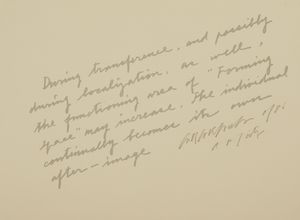 During transference, and possibly
during localization, as well,
the functioning area of "Forming
Space" may increase. The individual
continually becomes its own
after-image